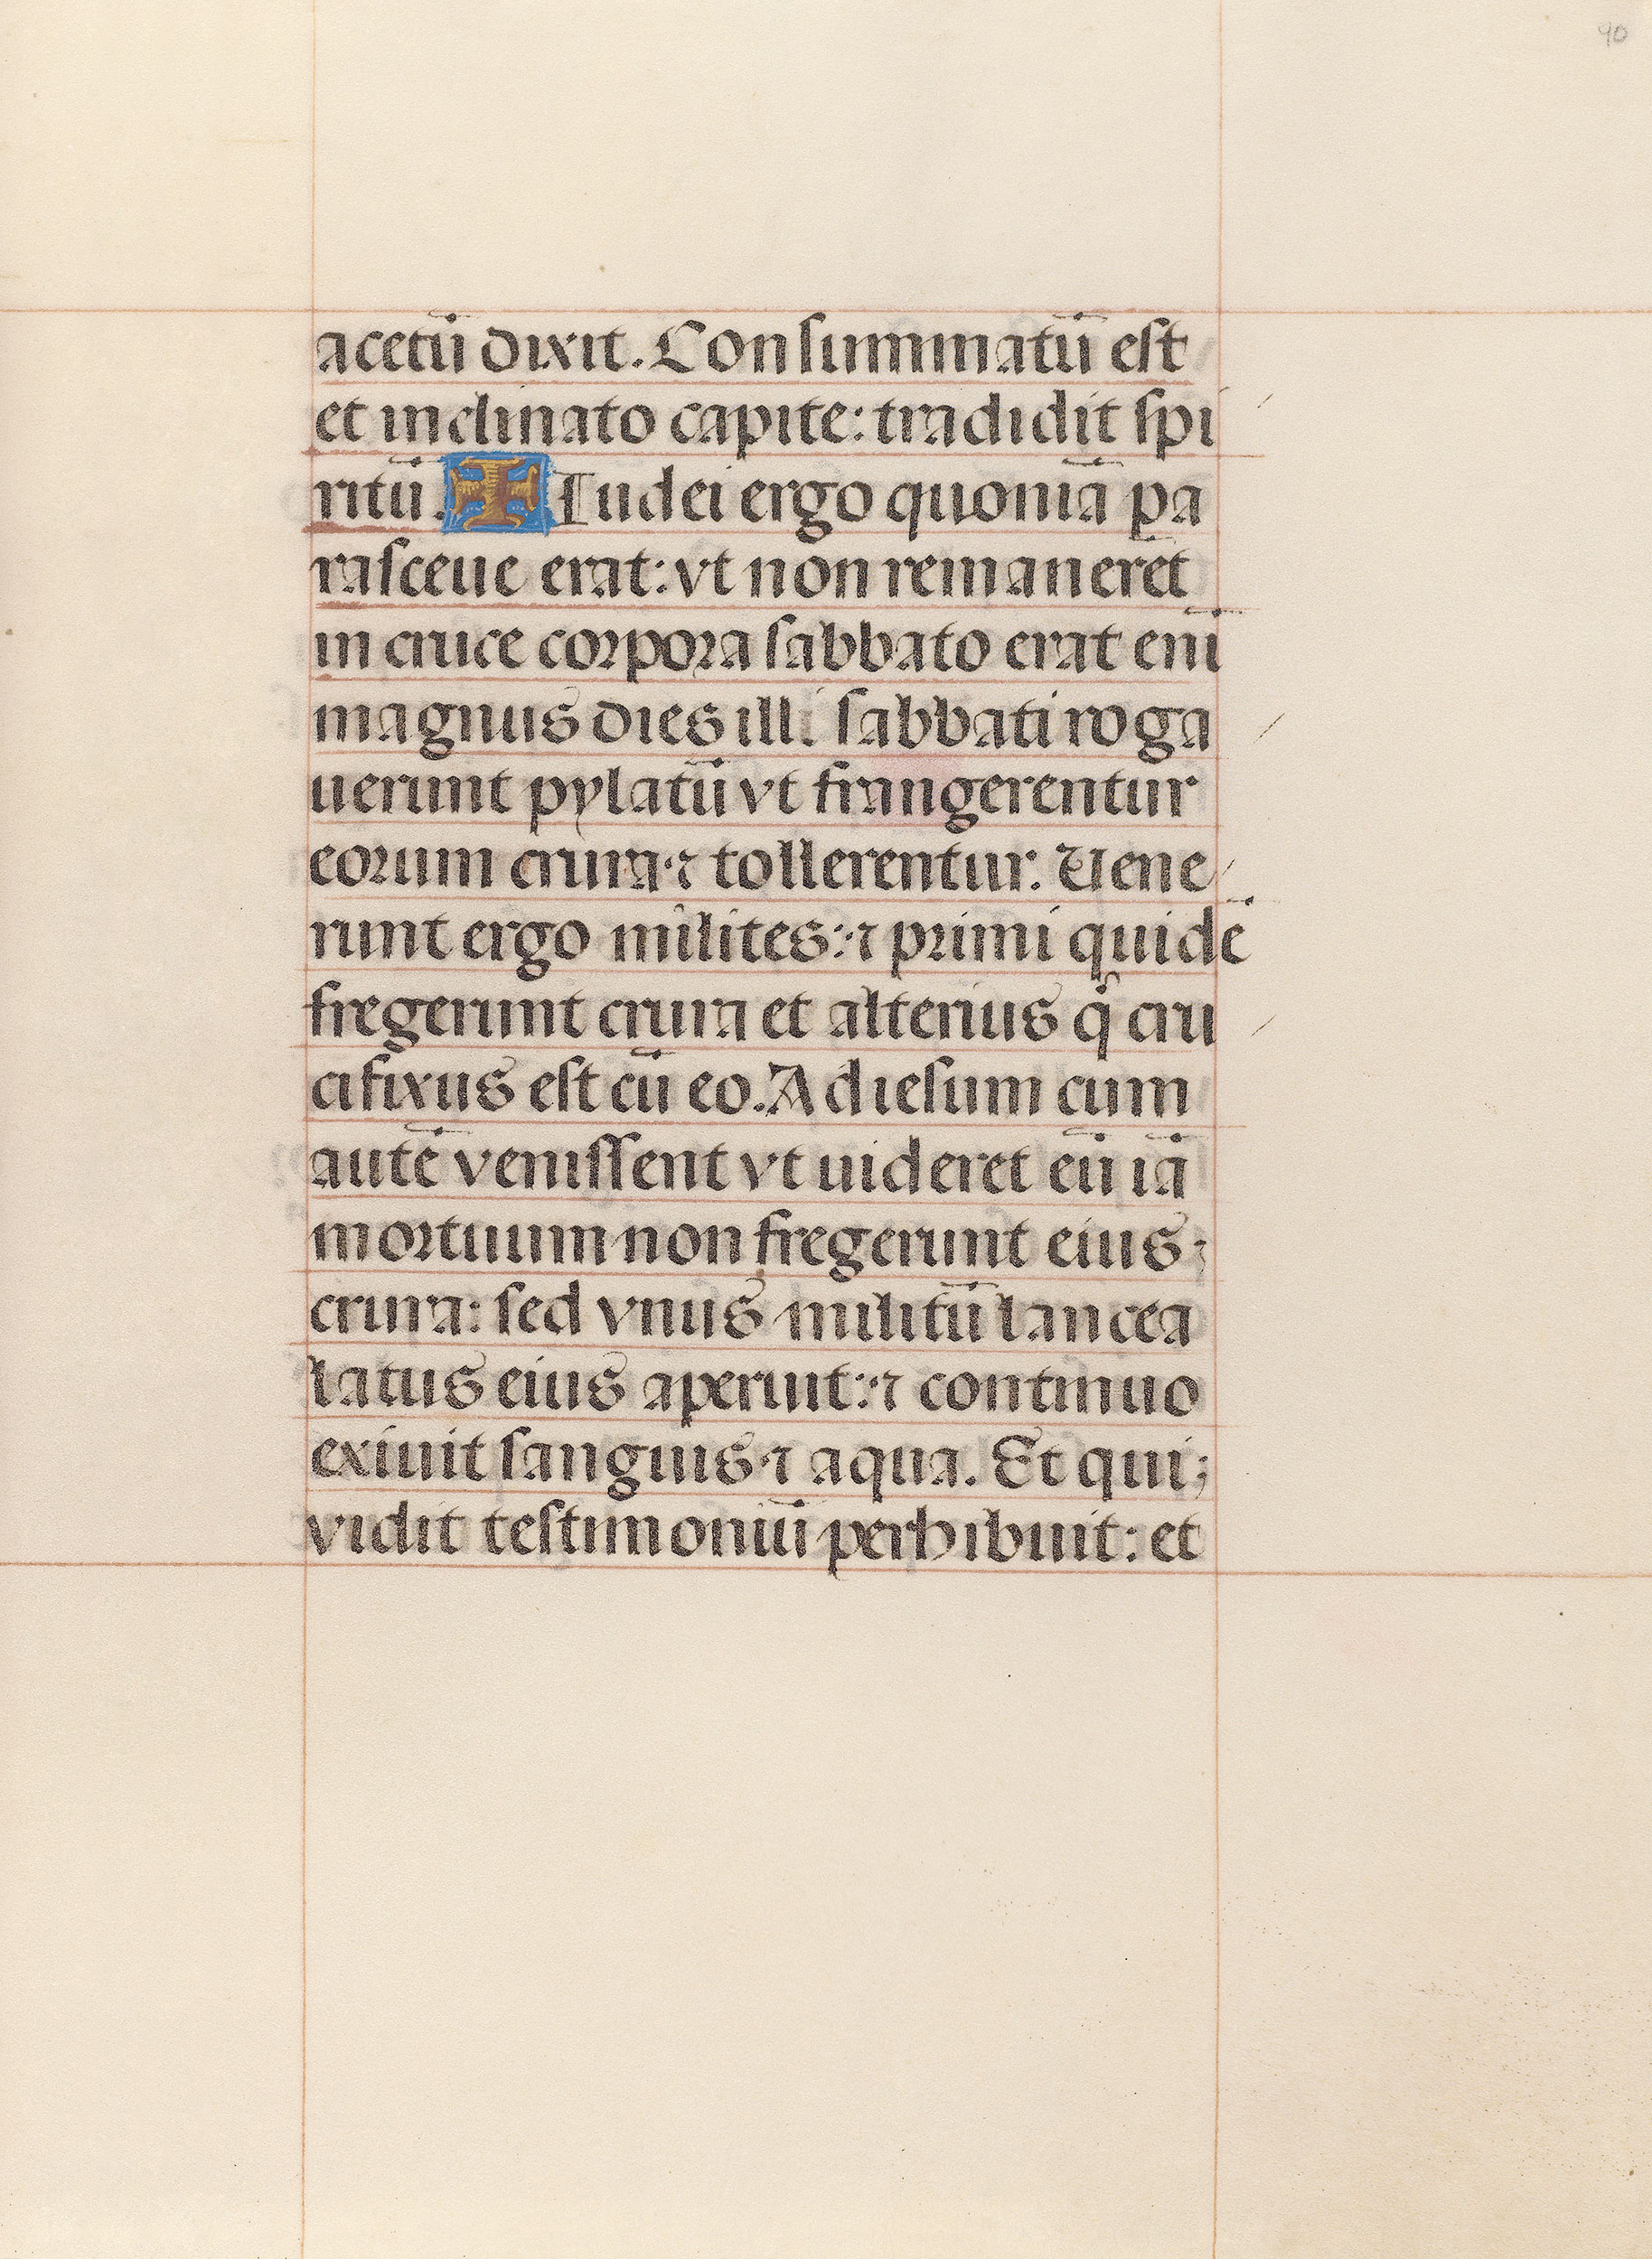 40
acetū dixit. Consummatū est
et inclinato capite: tradidit spi
ritū. I Iudei ergo quoniā pa
rasceue erat: vt non remanerēt
in cruce corpora sabbato erat eni̅
magnus dies illi sabbati roga
uerunt pylatū vt frangerentur
eorum crura ⁊ tollerentur. Uene
runt ergo milites: ⁊ primi quidē
fregerunt crura et alterius q̇ cru
cifixus est cū eo. Ad iesum cum
autē venissent vt uideret eū iā
mortuum non fregerunt eius
crura: sed vnus militū lancea
latus eius aperuit: ⁊ continuo
exiuit sanguis ⁊ aqua. Et qui
vidit testimoniū perhibuit: et